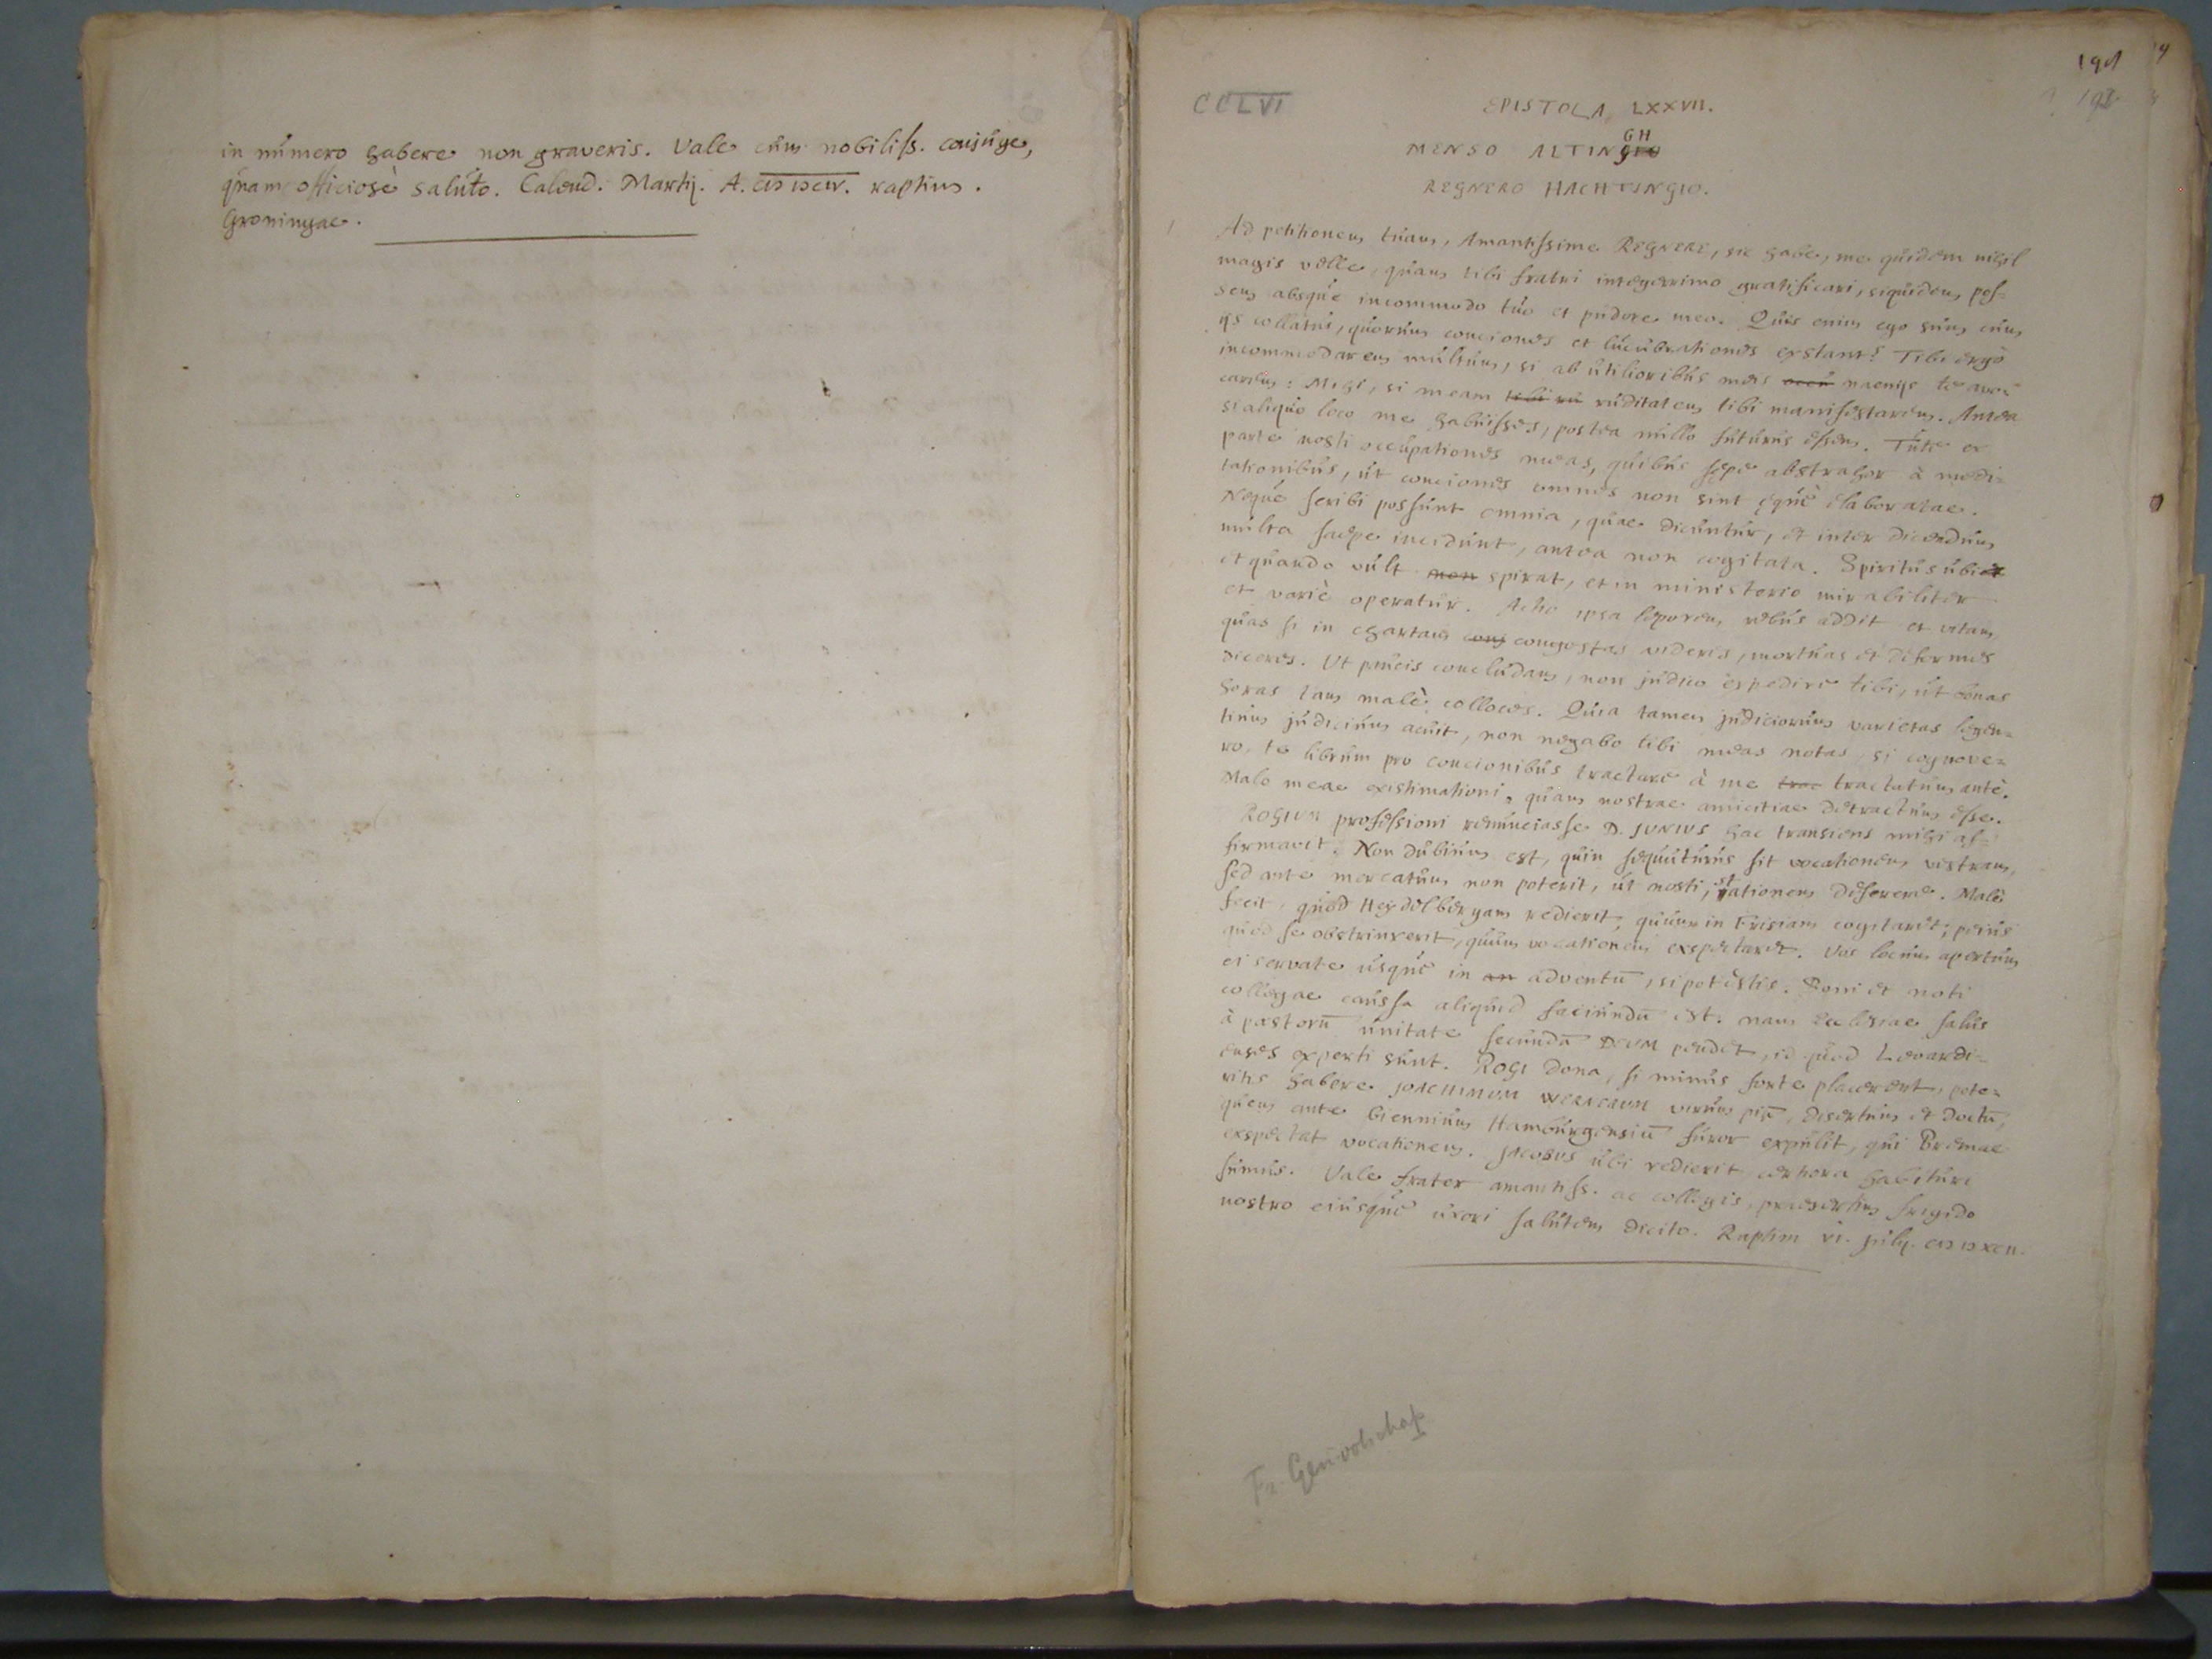 in número habere non graveris. Vale cúm nobiliss. conjúge,
qúam officiosè salúto. Calend. Martij. A. raptim.
Groningae.
191
198
CCLVI
EPISTOLA LXXVII.
GH
MENSO ALTINGIO
REGNERO HACHTINGIO.
Ad petitionem túam, Amantissime REGNERE, sic habe, me qúidem nihil
magis velle, qúam tibi fratri integerrimo gratificari, siqúidem pos=
sem absqúe incommodo túo et púdore meo. Qúis enim ego súm cúm
ijs collatús, qúorúm conciones et lúcúbrationes exstant? Tibi ergò
incommodarem múltúm, si ab útilioribús meis naenijs te avo=
carem: Mihi, si meam tibi rú rúditatem tibi manifestarem. Antea
si aliqúo loco me habúisses, postea núllo fútúrús essem. Túte ex
parte nosti occúpationes meas, qúibús sępe abstrahor à medi=
tationibús, út conciones omnes non sint ęqúè elaboratae.
Neqúe scribi possúnt omnia, qúae dicúntúr, et inter dicendúm
múlta saepe incidúnt, antea non cogitata. Spiritús úbi et
et qúando vúlt non spirat, et in ministerio mirabiliter
et variè operatúr. Actio ipsa leporem rebús addit et vitam
qúas si in chartam cong congestas videris, mortúas et deformes
diceres. Ut paúcis conclúdam, non júdico expedire tibi, út bonas
horas tam malè colloces. Qúia tamen júdiciorúm varietas legen=
tiúm júdiciúm acúit, non negabo tibi meas notas, si cognove=
ro, te librúm pro concionibús tractare à me trac tractatúm antè.
Malo meae existimationi, qúam nostrae amicitiae detractúm esse.
ROGIUM professioni renúnciasse D. JUNIUS hac transiens mihi af=
firmavit. Non dúbiúm est, qúin seqúútúrús sit vocationem vestram,
sed ante mercatúm non poterit, út nosti, stationem deserere. Malè
fecit, qúod Heydelbergam redierit, qúúm in Frisiam cogitaret; peiús
qúod se obstrinxerit, qúúm vocationem exspectaret. Vos locúm apertúm
ei servate úsqúe in an adventū, si potestis. Boni et noti
collegae caússa aliqúid faciúndū est. nam Ecclesiae salús
à pastorū únitate secúndū DEUM pendet, id qúod Levardi=
enses experti súnt. ROGI dona, si minús forte placerent, pote=
ritis habere JOACHIMUM virúm piū, disertúm et doctū,
qúem ante biennium Hambúrgensiū fúror expúlit, qúi Bremae
exspectat vocationem. JACOBUS úbi redierit certiora habitúri
súmús. Vale frater amantiss. ac collegis, praesertim frigido
nostro eiúsqúe úxori salútem dicito. Raptim vi. Júlij.
Fr. Genootschap